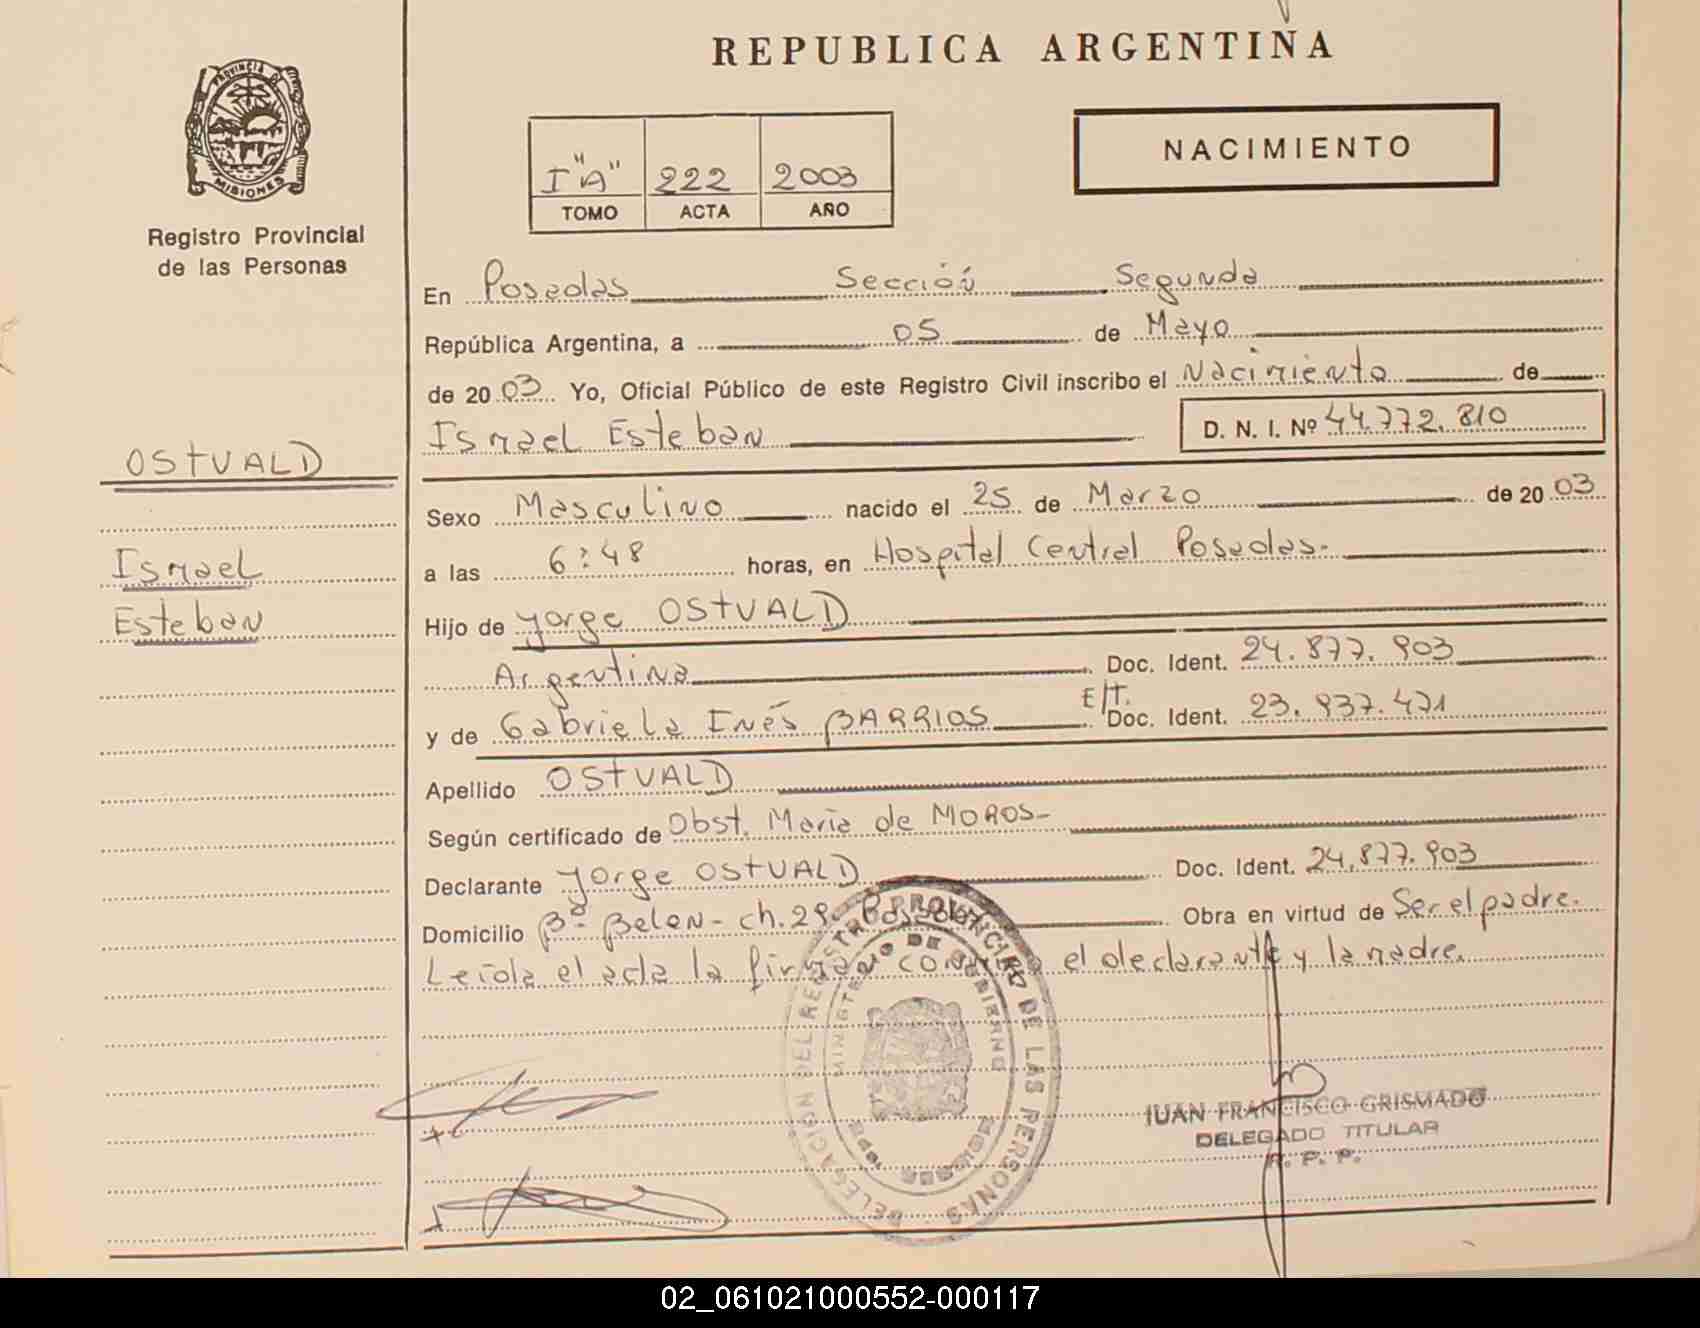 REPUBLICA ARGENTINA
PROVINCIA DE
MISIONES
Registro Provincial
de las Personas
I "A" 222 2003
TOMO ACTA AÑO
NACIMIENTO
En Posadas Sección Segunda
República Argentina, a 05 de Mayo
de 20 03 Yo, Oficial Público de este Registro Civil inscribo el Nacimiento de
Ismael Esteban D. N. I. Nº 44.772.810
OSTVALD
Ismael
Esteban
Sexo Masculino nacido el 25 de Marzo de 20 03
a las 6:48 horas, en Hospital Central Posadas.-
Hijo de Jorge OSTVALD
Argentina Doc. Ident. 24.877.903
y de Gabriela Inés BARRIOS E/T. Doc. Ident. 23.937.471
Apellido OSTVALD
Según certificado de Obst. María de MOROS-
Declarante Jorge OSTVALD Doc. Ident. 24.877.903
Domicilio Bº Belen - ch. 29. Posadas Obra en virtud de Ser el padre.
Leída el acta la firman conmigo el declarante y la madre.
DELEGACION DEL REGISTRO PROVINCIAL DE LAS PERSONAS
MINISTERIO DE GOBIERNO
JUAN FRANCISCO GRISMADO
DELEGADO TITULAR
R. P. P.
02_061021000552-000117